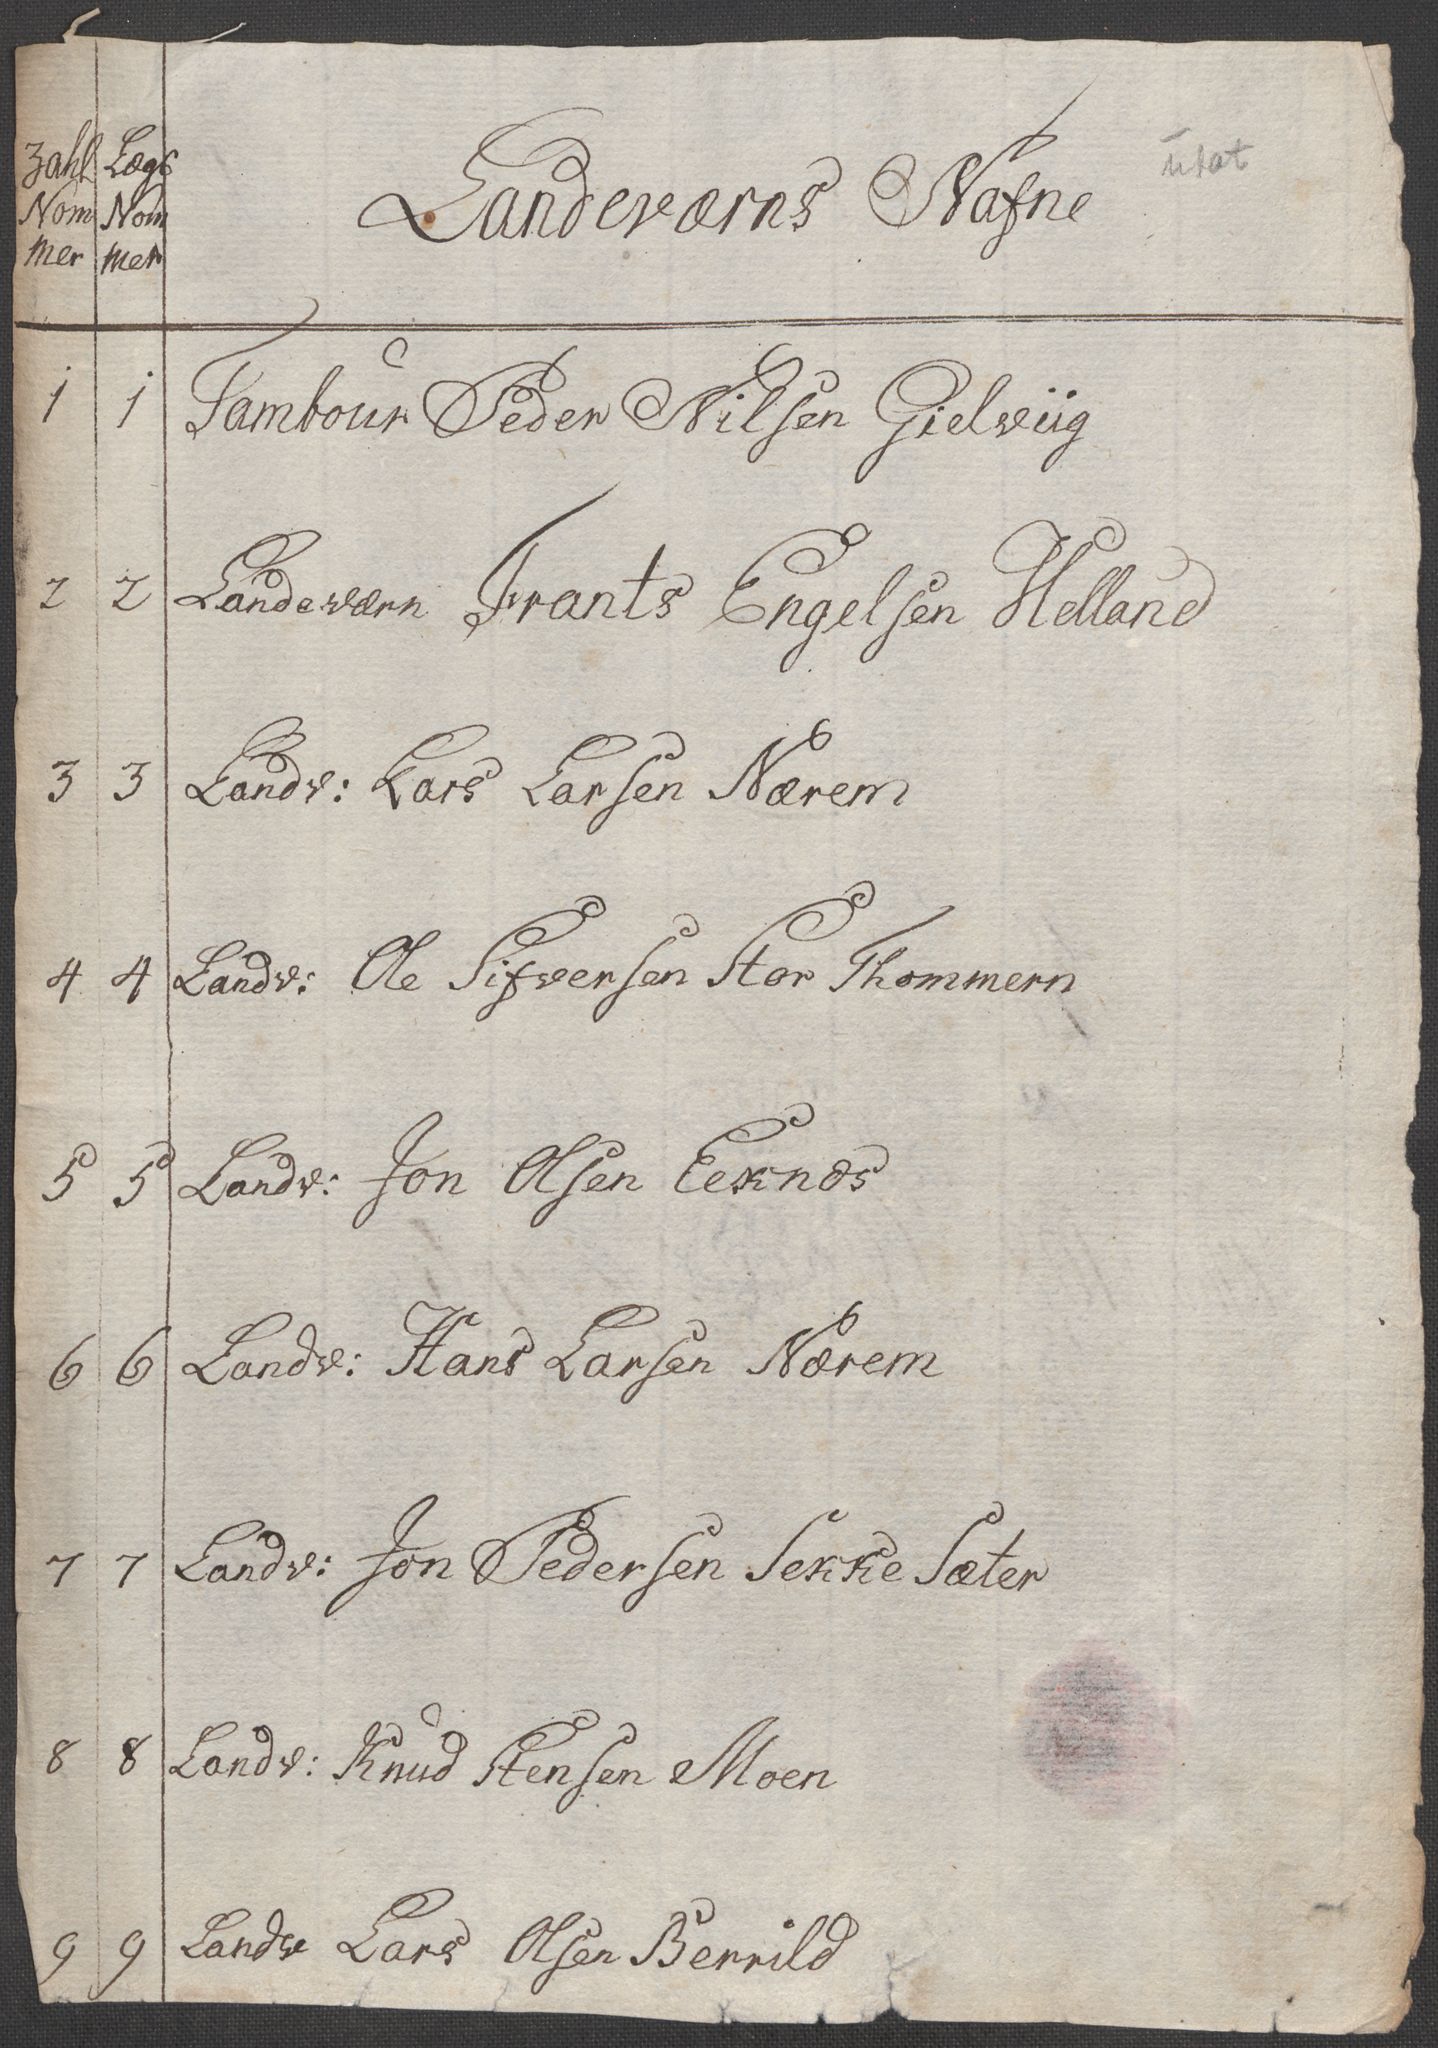 Zahl Nommer
Lægs Nommer
Landeværns Nafne
1 1 Tambour Peder Nilsen Gielviig
2 2 Landeværn Frants Engelsen Helland
3 3 Landv: Lars Larsen Nærem
4 4 Landv: Ole Sifversen Stor Thommern
5 5 Landv: Jon Olsen Eeknæs
6 6 Landv: Hans Larsen Nærem
7 7 Landv: Jon Pedersen Sekke Sæter
8 8 Landv: Knud Stensen Moen
9 9 Landv Lars Olsen Berrild